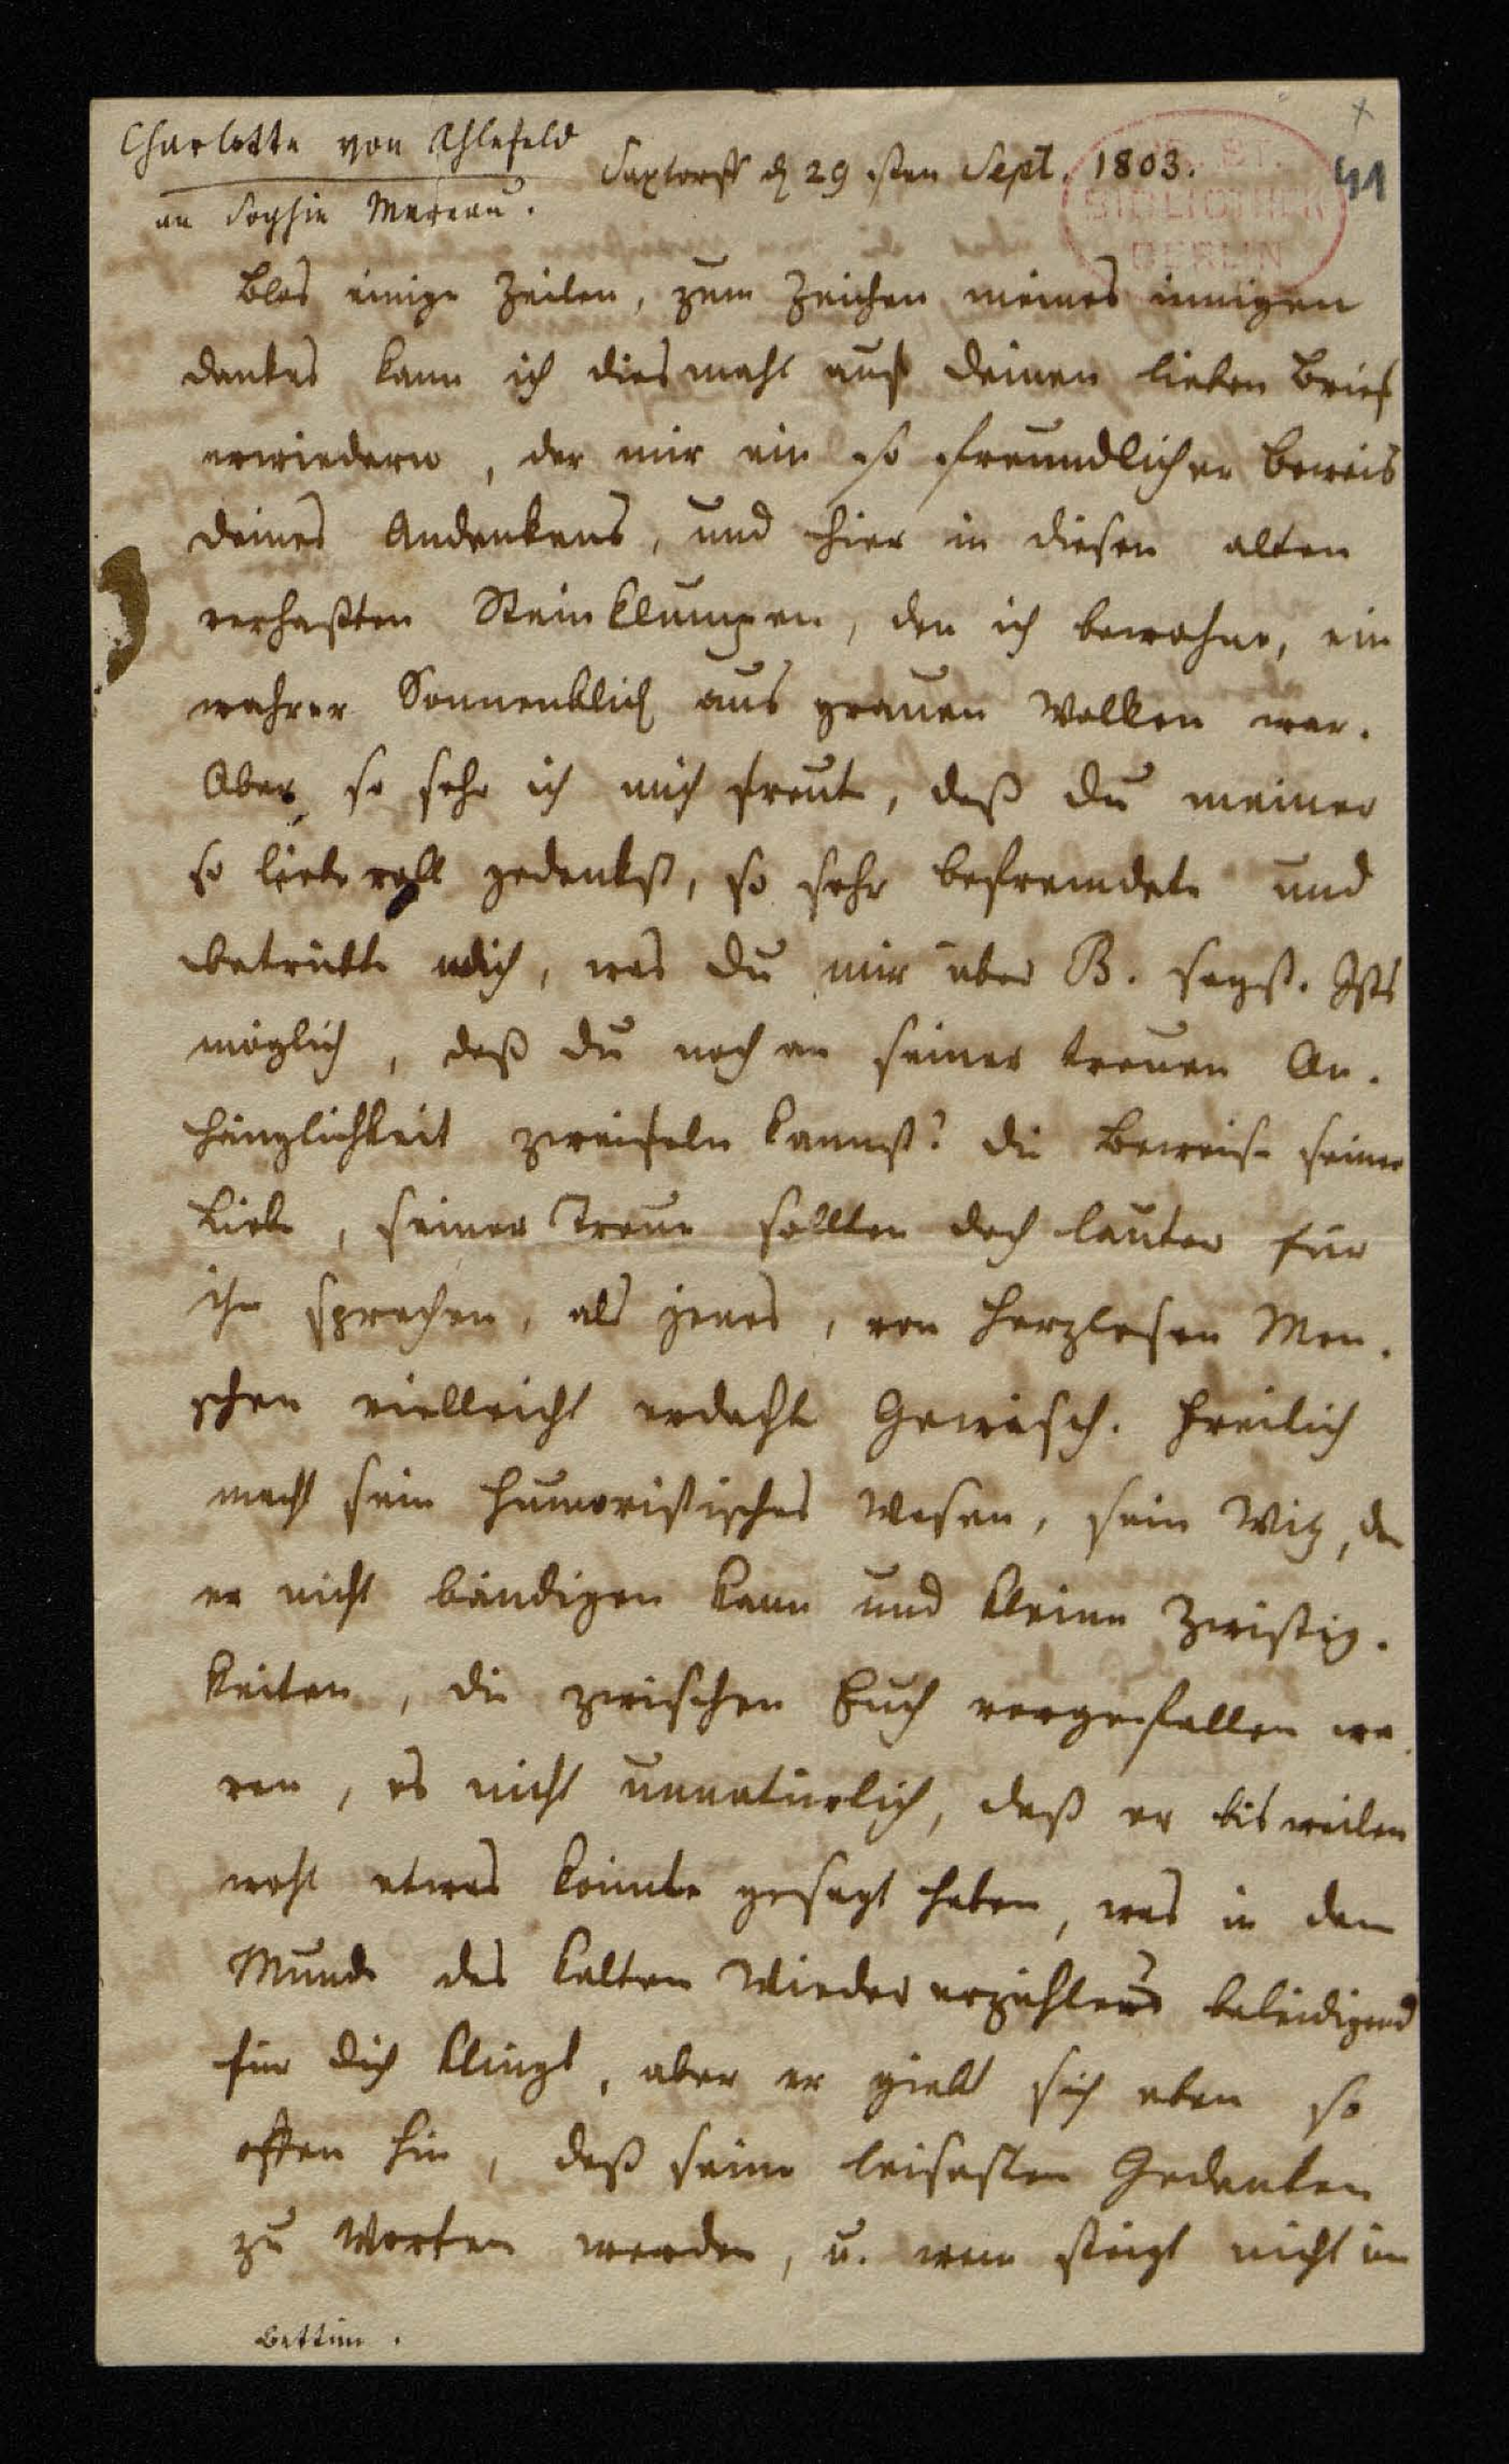 Charlotte von Ahlefeld
an Sophie Mereau.
Saxtorff d 29 sten Sept. 1803.
41
BIBLIOTHEK
BERLIN
Blos einige Zeilen, zum Zeichen meines innigen
Dankes kann ich diesmahl auf deinen lieben Brief
erwiedern, der mir ein so freundlicher Beweis
deines Andenkens, und hier in diesen alten
verhaßten Steinklumpen, den ich bewohne, ein
wahrer Sonnenblick aus grauen Wolken war.
Aber so sehr ich mich freute, daß du meiner
so liebevoll gedenkst, so sehr befremdete und
betrübte mich, was du mir über B. sagst. Ists
möglich, daß du noch an seiner treuen An-
hänglichkeit zweifeln kannst? die Beweise seiner
Liebe, seiner Treue sollten doch lauter für
ihn sprechen, als jenes, von herzlosen Men-
schen vielleicht erdachte Gewäsch. Freilich
macht sein humoristisches Wesen, sein Witz, den
er nicht bändigen kann und kleine Zwistig-
keiten, die zwischen Euch vorgefallen wa-
ren, es nicht unnatürlich, daß er bisweilen
wohl etwas könnte gesagt haben, was in dem
Munde des kalten Wiedererzählers beleidigend
für dich klingt, aber er giebt sich eben so
offen hin, daß seine leisesten Gedanken
zu Worten werden, u. wem steigt nicht im